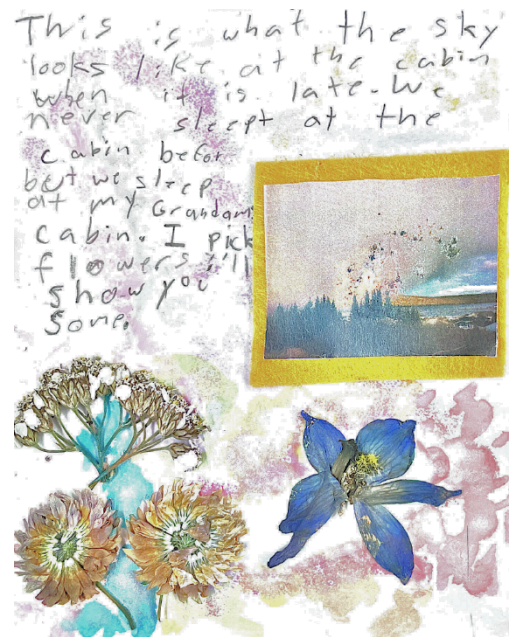 This is what the sky
looks like at the cabin
when it is late. We
never sleept at the
cabin befor
but we sleep
at my Grandams
cabin. I pick
flowers i'll
show you
some.